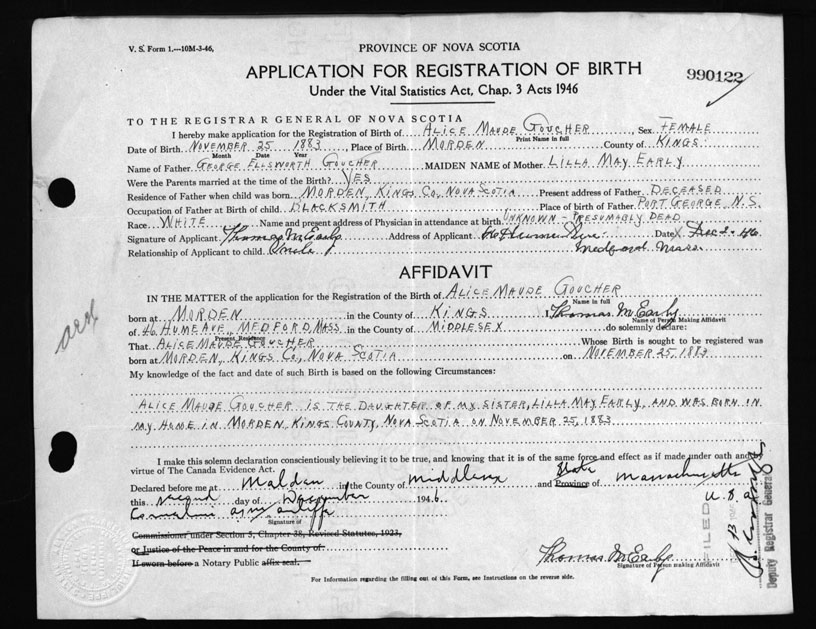 V. S. Form 1.—10M-3-46,
PROVINCE OF NOVA SCOTIA
APPLICATION FOR REGISTRATION OF BIRTH
990122
Under the Vital Statistics Act, Chap. 3 Acts 1946
TO THE REGISTRAR GENERAL OF NOVA SCOTIA
I hereby make application for the Registration of Birth of ALICE MAUDE GOUCHER, Sex FEMALE
Print Name in full
Date of Birth NOVEMBER 25 1883, Place of Birth MORDEN County of KINGS
Month Date Year
Name of Father GEORGE ELLSWORTH GOUCHER MAIDEN NAME of Mother LILLA MAY EARLY
Were the Parents married at the time of the Birth? YES
Residence of Father when child was born MORDEN, KINGS CO, NOVA SCOTIA Present address of Father DECEASED
Occupation of Father at Birth of child BLACKSMITH Place of birth of Father PORT GEORGE, N.S.
Race WHITE Name and present address of Physician in attendance at birth UNKNOWN - PRESUMABLY DEAD
Signature of Applicant Thomas M Early Address of Applicant 46 Hume Ave Date X Dec 2 - 46
Relationship of Applicant to child Uncle Medford Mass.
AFFIDAVIT
IN THE MATTER of the application for the Registration of Birth of ALICE MAUDE GOUCHER
Name in full
born at MORDEN in the County of KINGS I Thomas M Early
Name of Person Making Affidavit
of 46 HUME AVE, MEDFORD, MASS in the County of MIDDLESEX do solemnly declare:
Present Residence
That ALICE MAUDE GOUCHER Whose Birth is sought to be registered was
born at MORDEN, KINGS CO, NOVA SCOTIA on NOVEMBER 25, 1883
My knowledge of the fact and date of such Birth is based on the following Circumstances:
ALICE MAUDE GOUCHER IS THE DAUGHTER OF MY SISTER, LILLA MAY EARLY, AND WAS BORN IN
MY HOME IN MORDEN, KINGS COUNTY, NOVA SCOTIA ON NOVEMBER 25, 1883
I make this solemn declaration conscientiously believing it to be true, and knowing that it is of the same force and effect as if made under oath and by
virtue of The Canada Evidence Act.
Declared before me at Malden in the County of Middlesex and State Province of Massachusetts
this second day of December 1946 U. S. A
Signature of
Commissioner under Section 3, Chapter 38, Revised Statutes, 1923,
or Justice of the Peace in and for the County of
If sworn before a Notary Public affix seal.
Thomas M Early
Signature of Person making Affidavit
FILED
Deputy Registrar General
For Information regarding the filling out of this Form, see Instructions on the reverse side.